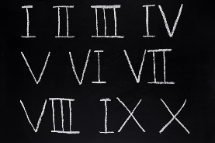 I II III IV
V VI VII
VIII IX X